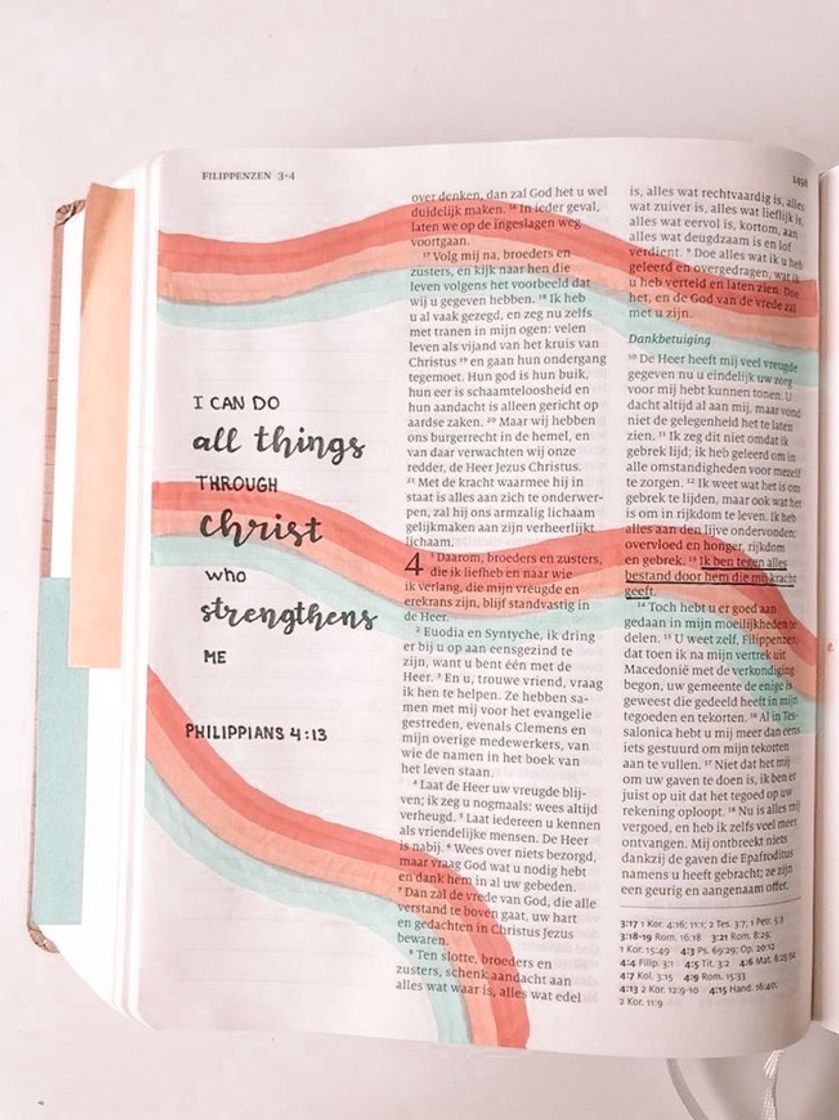 FILIPPENZEN 3-4
1498
I CAN DO
all things
THROUGH
Christ
who
strengthens
ME
PHILIPPIANS 4:13
over denken, dan zal God het u wel
duidelijk maken. 16 In ieder geval,
laten we op de ingeslagen weg
voortgaan.
17 Volg mij na, broeders en
zusters, en kijk naar hen die
leven volgens het voorbeeld dat
wij u gegeven hebben. 18 Ik heb
u al vaak gezegd, en zeg nu zelfs
met tranen in mijn ogen: velen
leven als vijand van het kruis van
Christus 19 en gaan hun ondergang
tegemoet. Hun god is hun buik,
hun eer is schaamteloosheid en
hun aandacht is alleen gericht op
aardse zaken. 20 Maar wij hebben
ons burgerrecht in de hemel, en
van daar verwachten wij onze
redder, de Heer Jezus Christus.
21 Met de kracht waarmee hij in
staat is alles aan zich te onderwer-
pen, zal hij ons armzalig lichaam
gelijkmaken aan zijn verheerlijkt
lichaam.
4 1 Daarom, broeders en zusters,
die ik liefheb en naar wie
ik verlang, die mijn vreugde en
erekrans zijn, blijf standvastig in
de Heer.
2 Euodia en Syntyche, ik dring
er bij u op aan eensgezind te
zijn, want u bent één met de
Heer. 3 En u, trouwe vriend, vraag
ik hen te helpen. Ze hebben sa-
men met mij voor het evangelie
gestreden, evenals Clemens en
mijn overige medewerkers, van
wie de namen in het boek van
het leven staan.
4 Laat de Heer uw vreugde blij-
ven; ik zeg u nogmaals: wees altijd
verheugd. 5 Laat iedereen u kennen
als vriendelijke mensen. De Heer
is nabij. 6 Wees over niets bezorgd,
maar vraag God wat u nodig hebt
en dank hem in al uw gebeden.
7 Dan zal de vrede van God, die alle
verstand te boven gaat, uw hart
en gedachten in Christus Jezus
bewaren.
8 Ten slotte, broeders en
zusters, schenk aandacht aan
alles wat waar is, alles wat edel
is, alles wat rechtvaardig is, alles
wat zuiver is, alles wat lieflijk is,
alles wat eervol is, kortom, aan
alles wat deugdzaam is en lof
verdient. 9 Doe alles wat ik u heb
geleerd en overgedragen, wat ik
u heb verteld en laten zien. Doe
het, en de God van de vrede zal
met u zijn.
Dankbetuiging
10 De Heer heeft mij veel vreugde
gegeven nu u eindelijk uw zorg
voor mij hebt kunnen tonen. U
dacht altijd al aan mij, maar vond
niet de gelegenheid het te laten
zien. 11 Ik zeg dit niet omdat ik
gebrek lijd; ik heb geleerd om in
alle omstandigheden voor mezelf
te zorgen. 12 Ik weet wat het is om
gebrek te lijden, maar ook wat het
is om in rijkdom te leven. Ik heb
alles aan den lijve ondervonden:
overvloed en honger, rijkdom
en gebrek. 13 Ik ben tegen alles
bestand door hem die mij kracht
geeft.
14 Toch hebt u er goed aan
gedaan in mijn moeilijkheden te
delen. 15 U weet zelf, Filippenzen,
dat toen ik na mijn vertrek uit
Macedonië met de verkondiging
begon, uw gemeente de enige is
geweest die gedeeld heeft in mijn
tegoeden en tekorten. 16 Al in Tes-
salonica hebt u mij meer dan eens
iets gestuurd om mijn tekorten
aan te vullen. 17 Niet dat het mij
om uw gaven te doen is, ik ben er
juist op uit dat het tegoed op uw
rekening oploopt. 18 Nu is alles mij
vergoed, en heb ik zelfs veel meer
ontvangen. Mij ontbreekt niets
dankzij de gaven die Epafroditus
namens u heeft gebracht; ze zijn
een geurig en aangenaam offer,
3:17 1 Kor. 4:16; 11:1; 2 Tes. 3:7; 1 Petr. 5:3
3:18-19 Rom. 16:18 3:21 Rom. 8:29;
1 Kor. 15:49 4:3 Ps. 69:29; Op. 20:12
4:4 Filip. 3:1 4:5 Tit. 3:2 4:6 Mat. 6:25-34
4:7 Kol. 3:15 4:9 Rom. 15:33
4:13 2 Kor. 12:9-10 4:15 Hand. 16:40;
2 Kor. 11:9